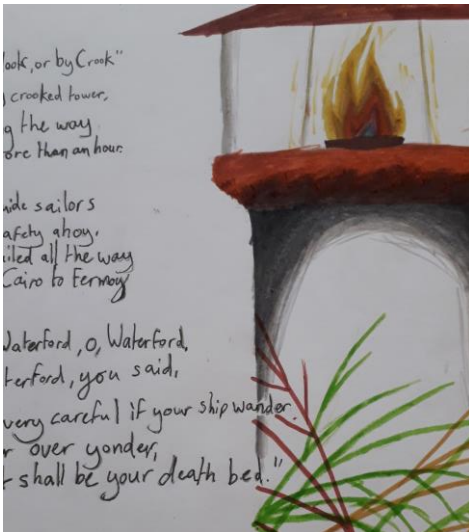 ook, or by Crook"
crooked tower,
g the way
ore than an hour.
ide sailors
afety ahoy.
iled all the way
Cairo to Fermoy
Waterford, O, Waterford,
terford, you said,
very careful if your ship wander,
r over yonder,
t shall be your death bed."